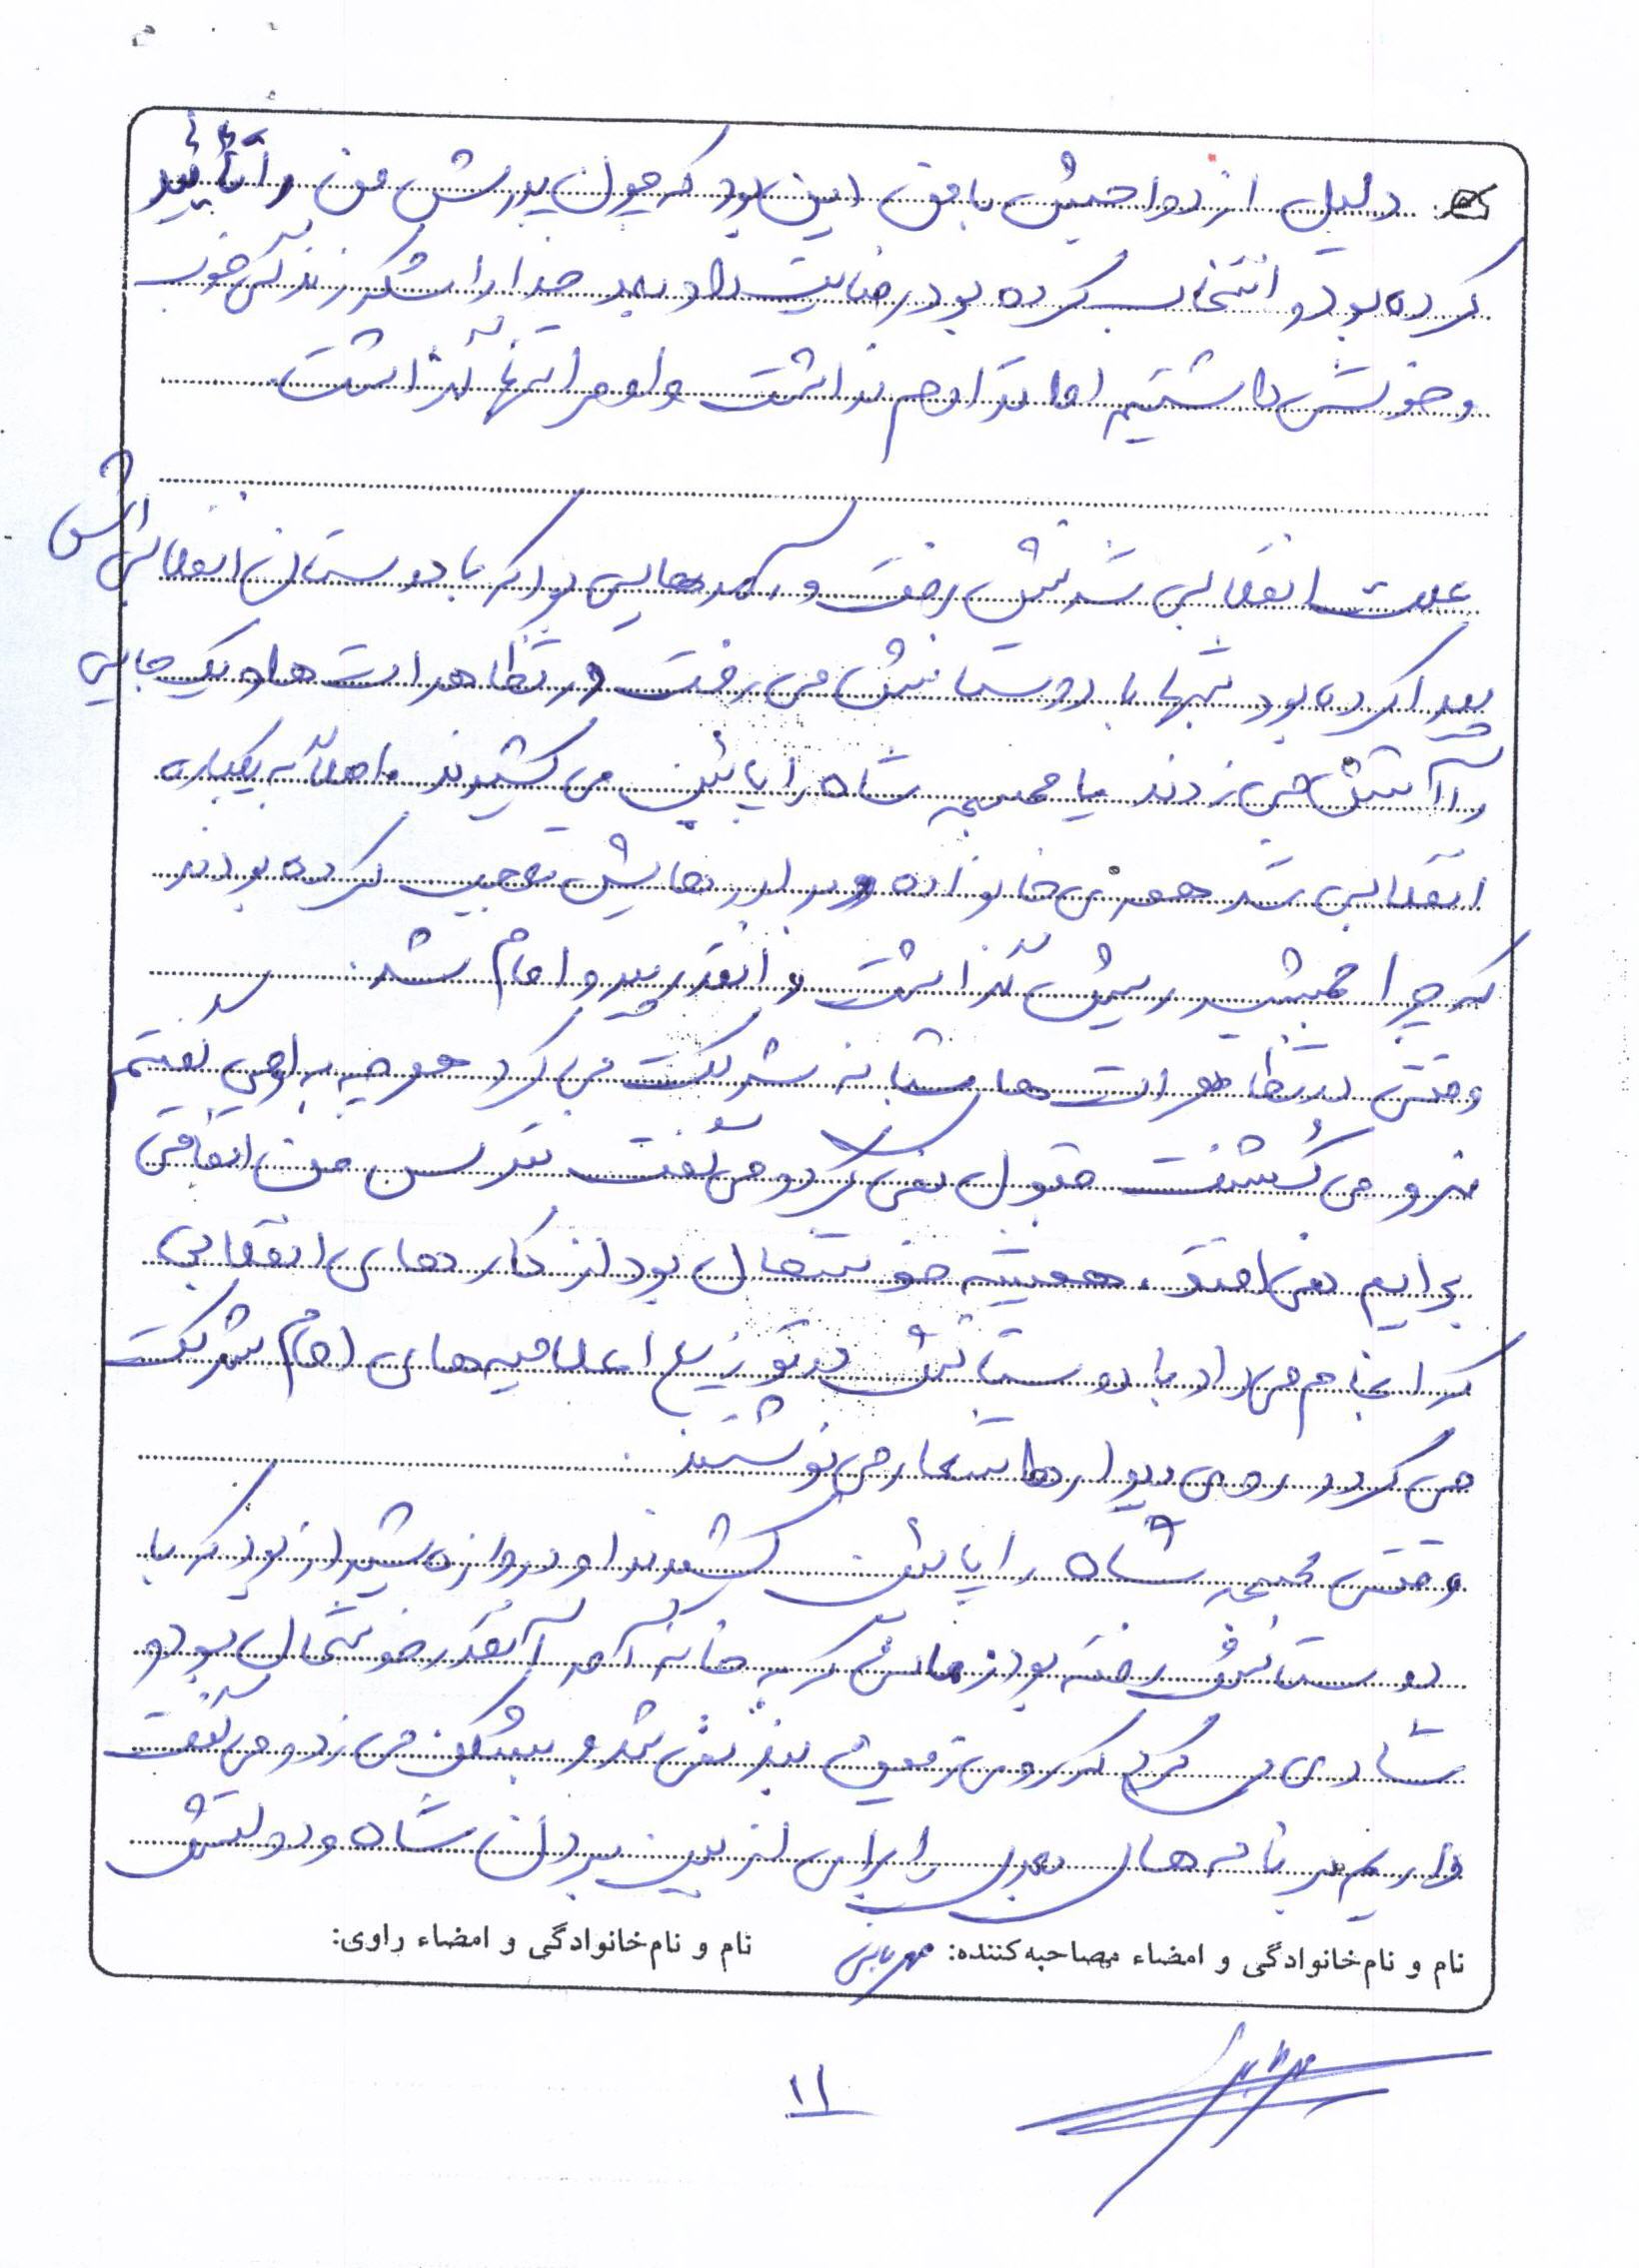 دلیل ازدواجش با من این بود که چون پدرش من را تأیید
کرده بود و انتخاب کرده بود رضایت داد و بعد خدا را شکر زندگی خوب
و خوش داشتیم اما تداوم نداشت و او مرا تنها گذاشت.
علت انقلابی شدنش رفت و آمدهایی بود که با دوستان انقلابی‌اش
پیدا کرده بود شبها با دوستانش می رفت در تظاهرات ها و یک جایی
را آتش می زدند یا مجسمه شاه را پائین می کشیدند اصلاً به یکباره
انقلابی شد همه ی خانواده و برادرهایش تعجب کرده بودند
که چرا جمشید ریش گذاشت و انقدر پیرو امام شد.
وقتی در تظاهرات های شبانه شرکت می کرد هر چه به او می گفتم
نرو می کشنت قبول نمی کرد و می گفت نترس من اتفاقی
برایم نمی افتد. همیشه خوشحال بود از کارهای انقلابی
که انجام می داد با دوستانش در توزیع اعلامیه های امام شرکت
می کرد و روی دیوارها شعار می نوشتند.
وقتی مجسمه شاه را پائین کشیدند او دروازه شیراز بود که با
دوستانش رفته بود زمانی که به خانه آمد آنقدر خوشحال بود و
شادی می کرد که روی زمین بند نمی شد و بشکن می زد و می گفت
داریم برنامه های بعدی را برای از بین بردن شاه و دولتش
نام و نام‌خانوادگی و امضاء مصاحبه‌کننده: نام و نام‌خانوادگی و امضاء راوی:
۱۱